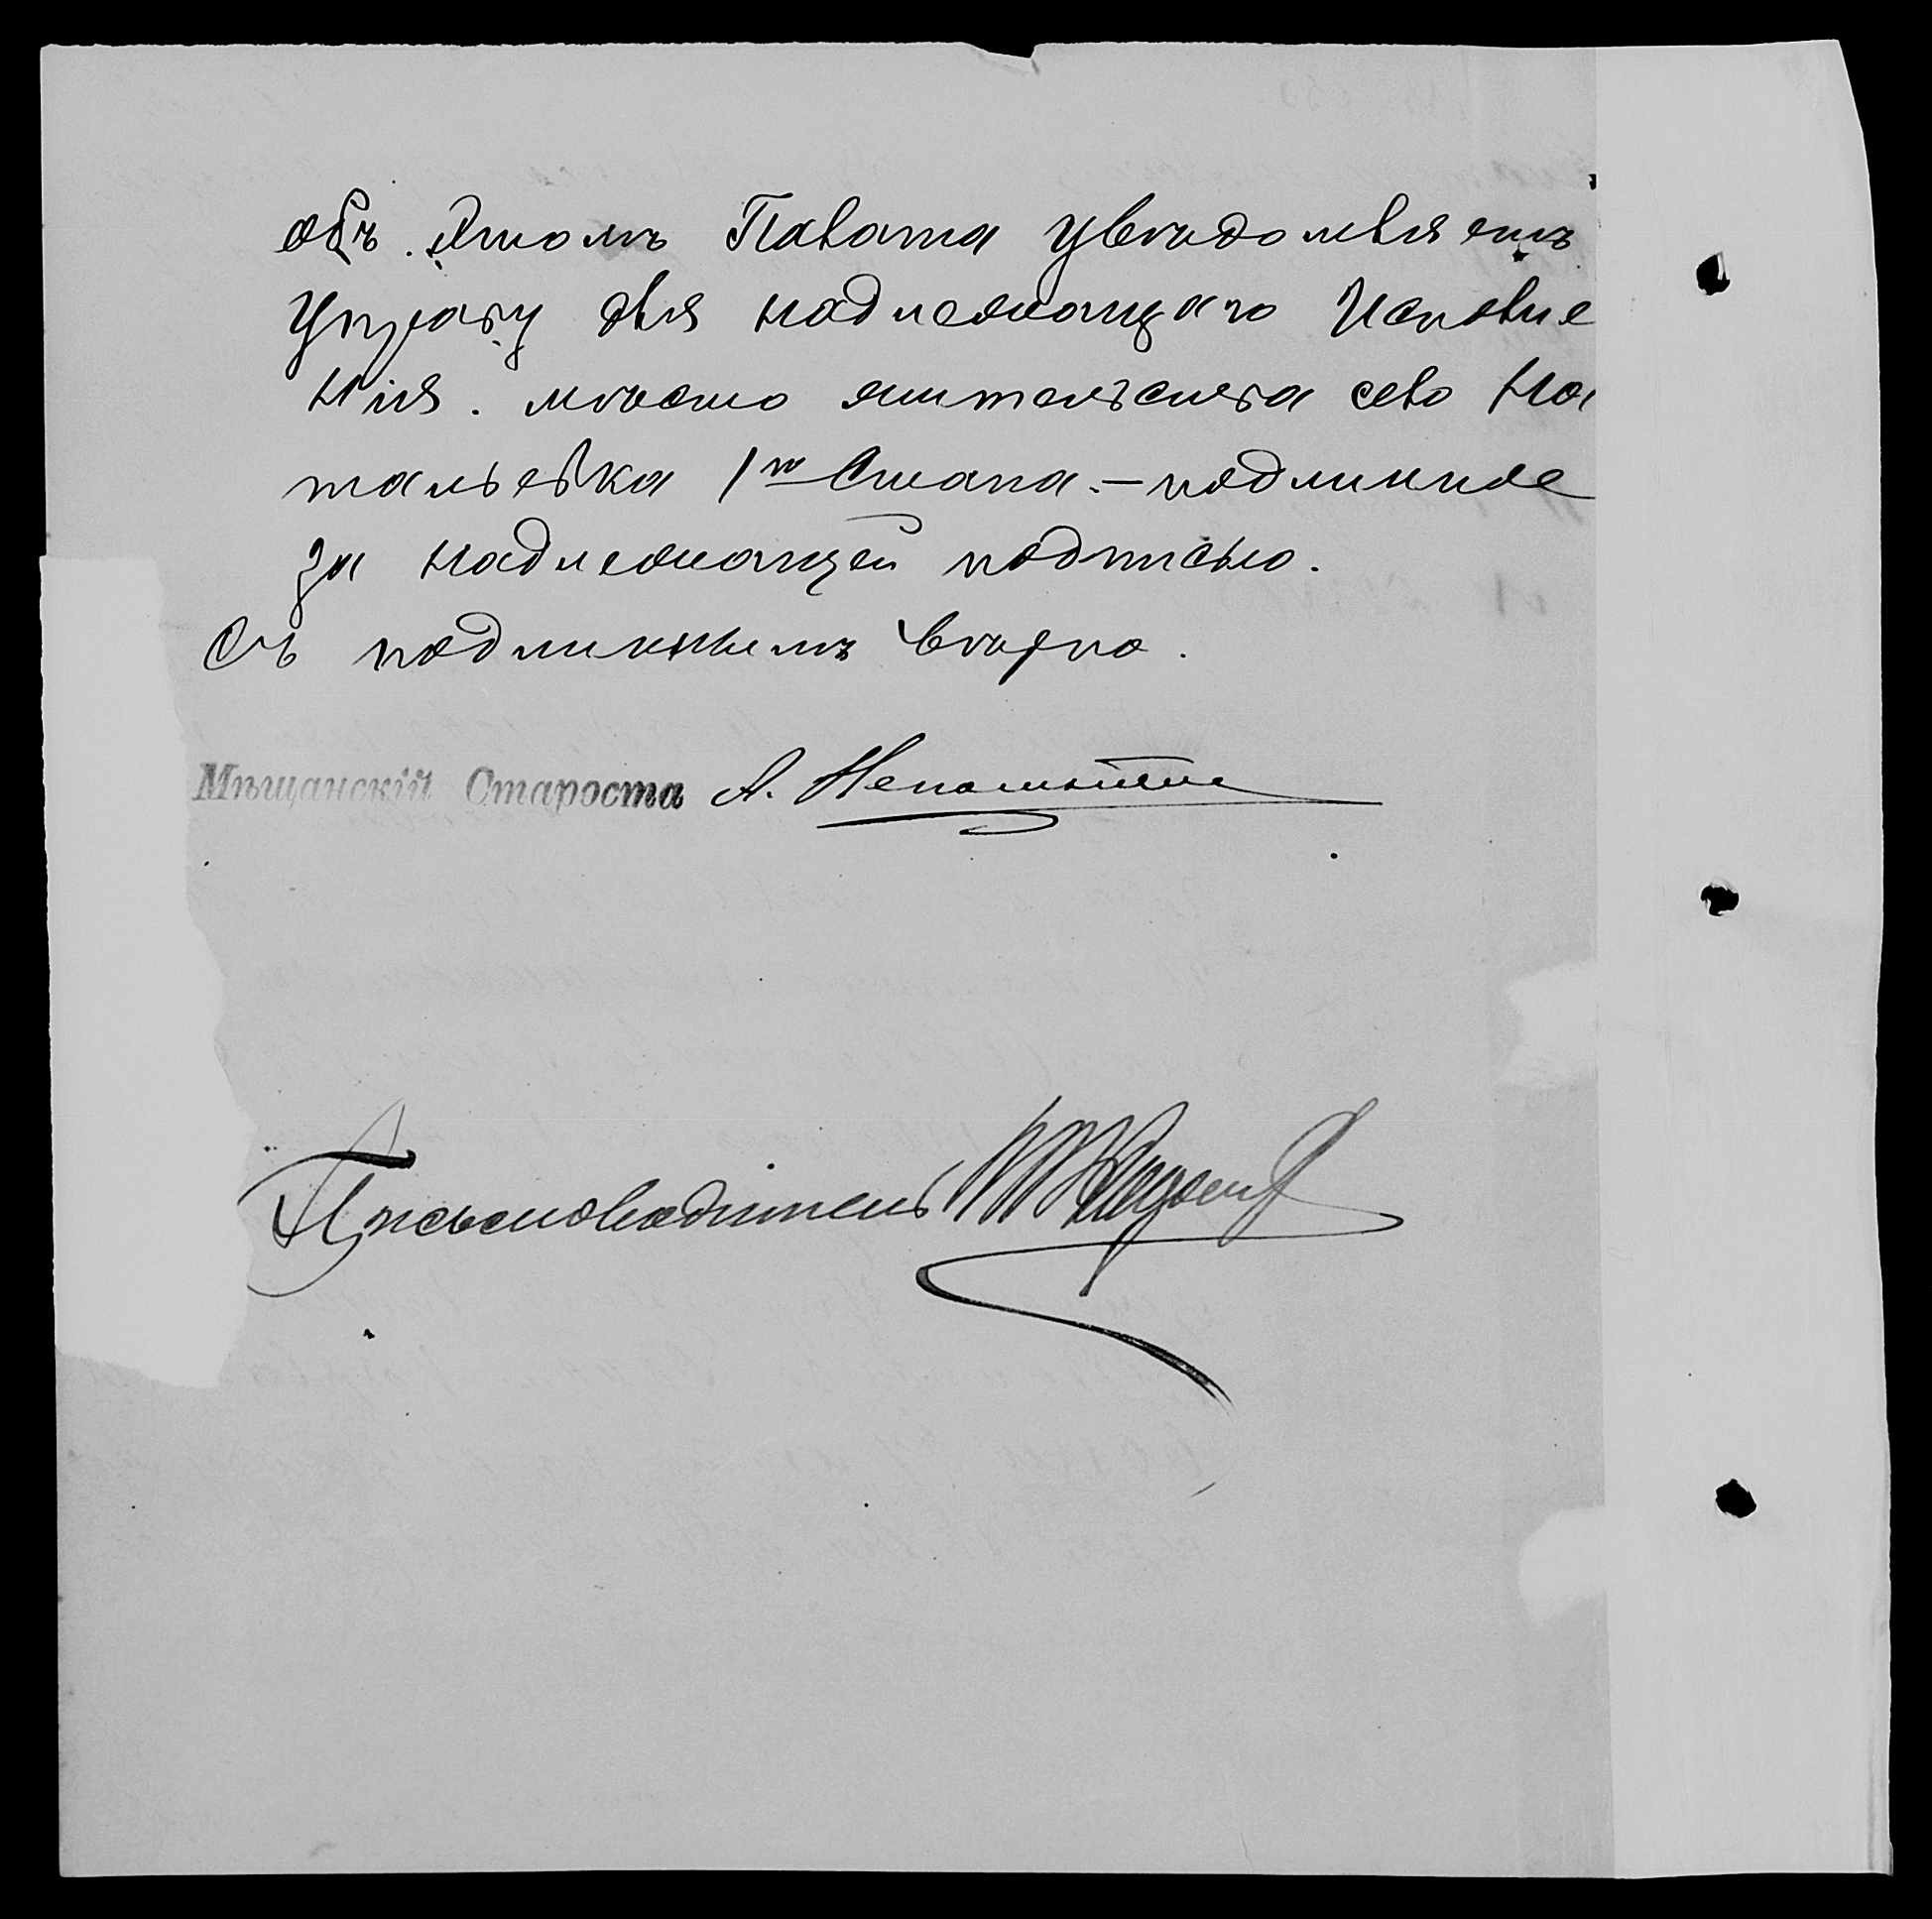 объ этомъ Палата увѣдомляетъ
Управу для надлежащаго Исполне
нія. мѣсто жительства село На
тальевка 1го Стана. — подлинное
за надлежащей подписью.
Съ подлиннымъ вѣрно.
Мѣщанскій Староста А.
Письмоводитель